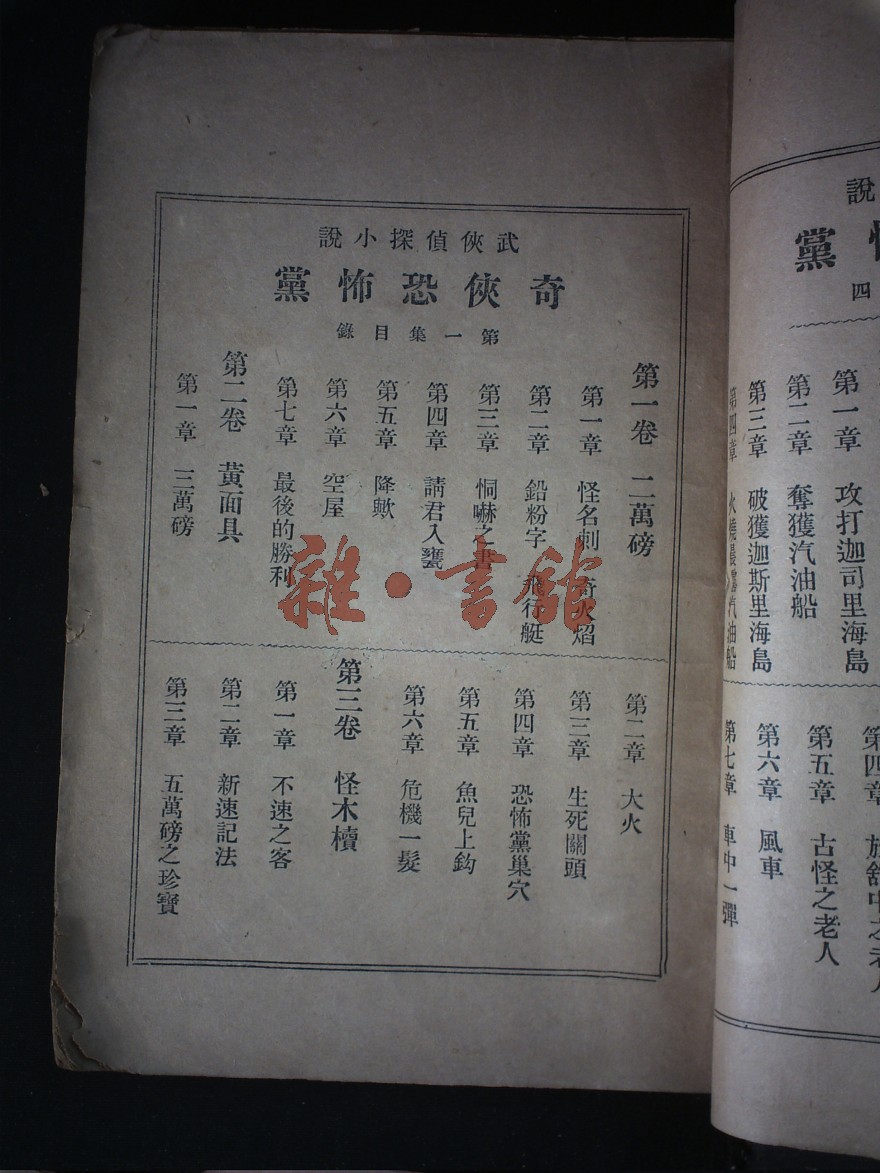 武俠偵探小說
奇俠恐怖黨
第一集目錄
第一卷 二萬磅
第一章 怪名刺 奇火焰
第二章 鉛粉字 飛行艇
第三章 恫嚇之書
第四章 請君入甕
第五章 降歟
第六章 空屋
第七章 最後的勝利
第二卷 黃面具
第一章 三萬磅
第二章 大火
第三章 生死關頭
第四章 恐怖黨巢穴
第五章 魚兒上鈎
第六章 危機一髮
第三卷 怪木櫝
第一章 不速之客
第二章 新速記法
第三章 五萬磅之珍寶
雜·書館
說
黨
四
第一章 攻打迦司里海島
第二章 奪獲汽油船
第三章 破獲迦斯里海島
第四章 火燒最 汽油船
第四章 中之老人
第五章 古怪之老人
第六章 風車
第七章 車中一彈